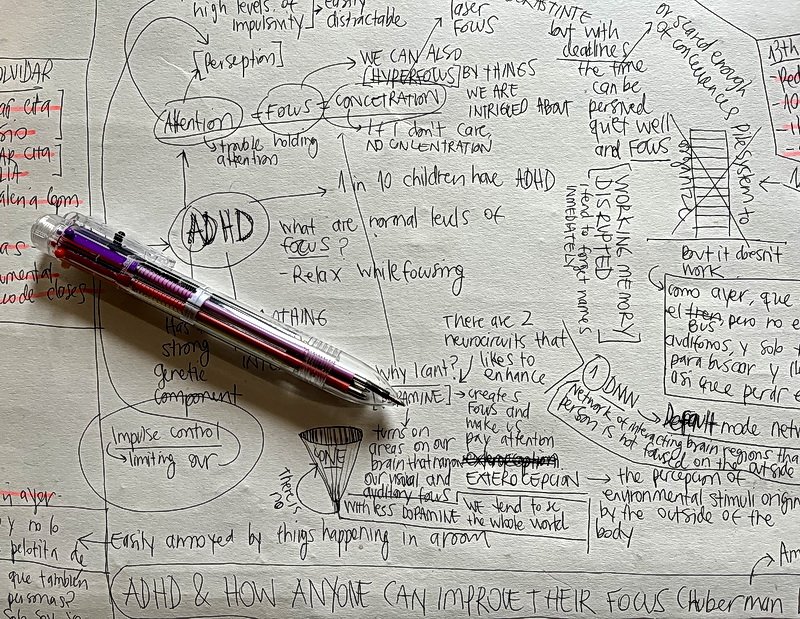 high levels of impulsivity] → easily distractable
[Perseption]
Attention = FOCUS = CONCETRATION
↳ trouble holding attention
WE CAN ALSO
[HYPERFOUS] BY THINGS
WE ARE
INTRIGUED ABOUT
laser
FOUS
↳ If I don't care,
NO CONCENTRATION
but with
deadlines
the time
can be
persived
quiet well
and FOUS
or scared enough
OF conseuences
Pile system to
organize
But it doesn't
work
13th
ADHD
→ 1 in 10 children have ADHD
what are normal levels of
focus?
- Relax while focusing
[WORKING MEMORY]
DISRUPTED
I tend to forget names
immediately
Has
strong
genetic
component
Impulse control
↳ limiting our
There are 2
neurocircuits that
likes to
enhance
why I cant?
→ creates
fous and
make us
pay attention
turns on
areas on our
brain that narrow
our visual and
auditory fous
CONE
There is
no
EXTEROCEPTION → the percepcion of
environmental stimuli origin
by the outside of the
body
WITH LESS DOPAMINE
WE tend to se
the whole world
1 DNN
→ Default mode netw
Network of interacting brain regions tha
person is not focused on the outside
como ayer, que
el tren, pero no e
BUS
audifonos, y solo
para buscar y
asi que perdí e
Easily annoyed by things happening in aroom
ADHD & HOW ANYONE CAN IMPROVE THEIR FOCUS (Huberman
OLVIDAR
cita
cita
code closes
n ayer
y no lo
pelotita de
que tambien
personas?